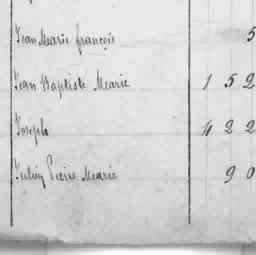 Jean Marie françois 5
Jean Baptiste Marie 1 5 2
Joseph 4 2 2
Julien Pierre Marie 9 0